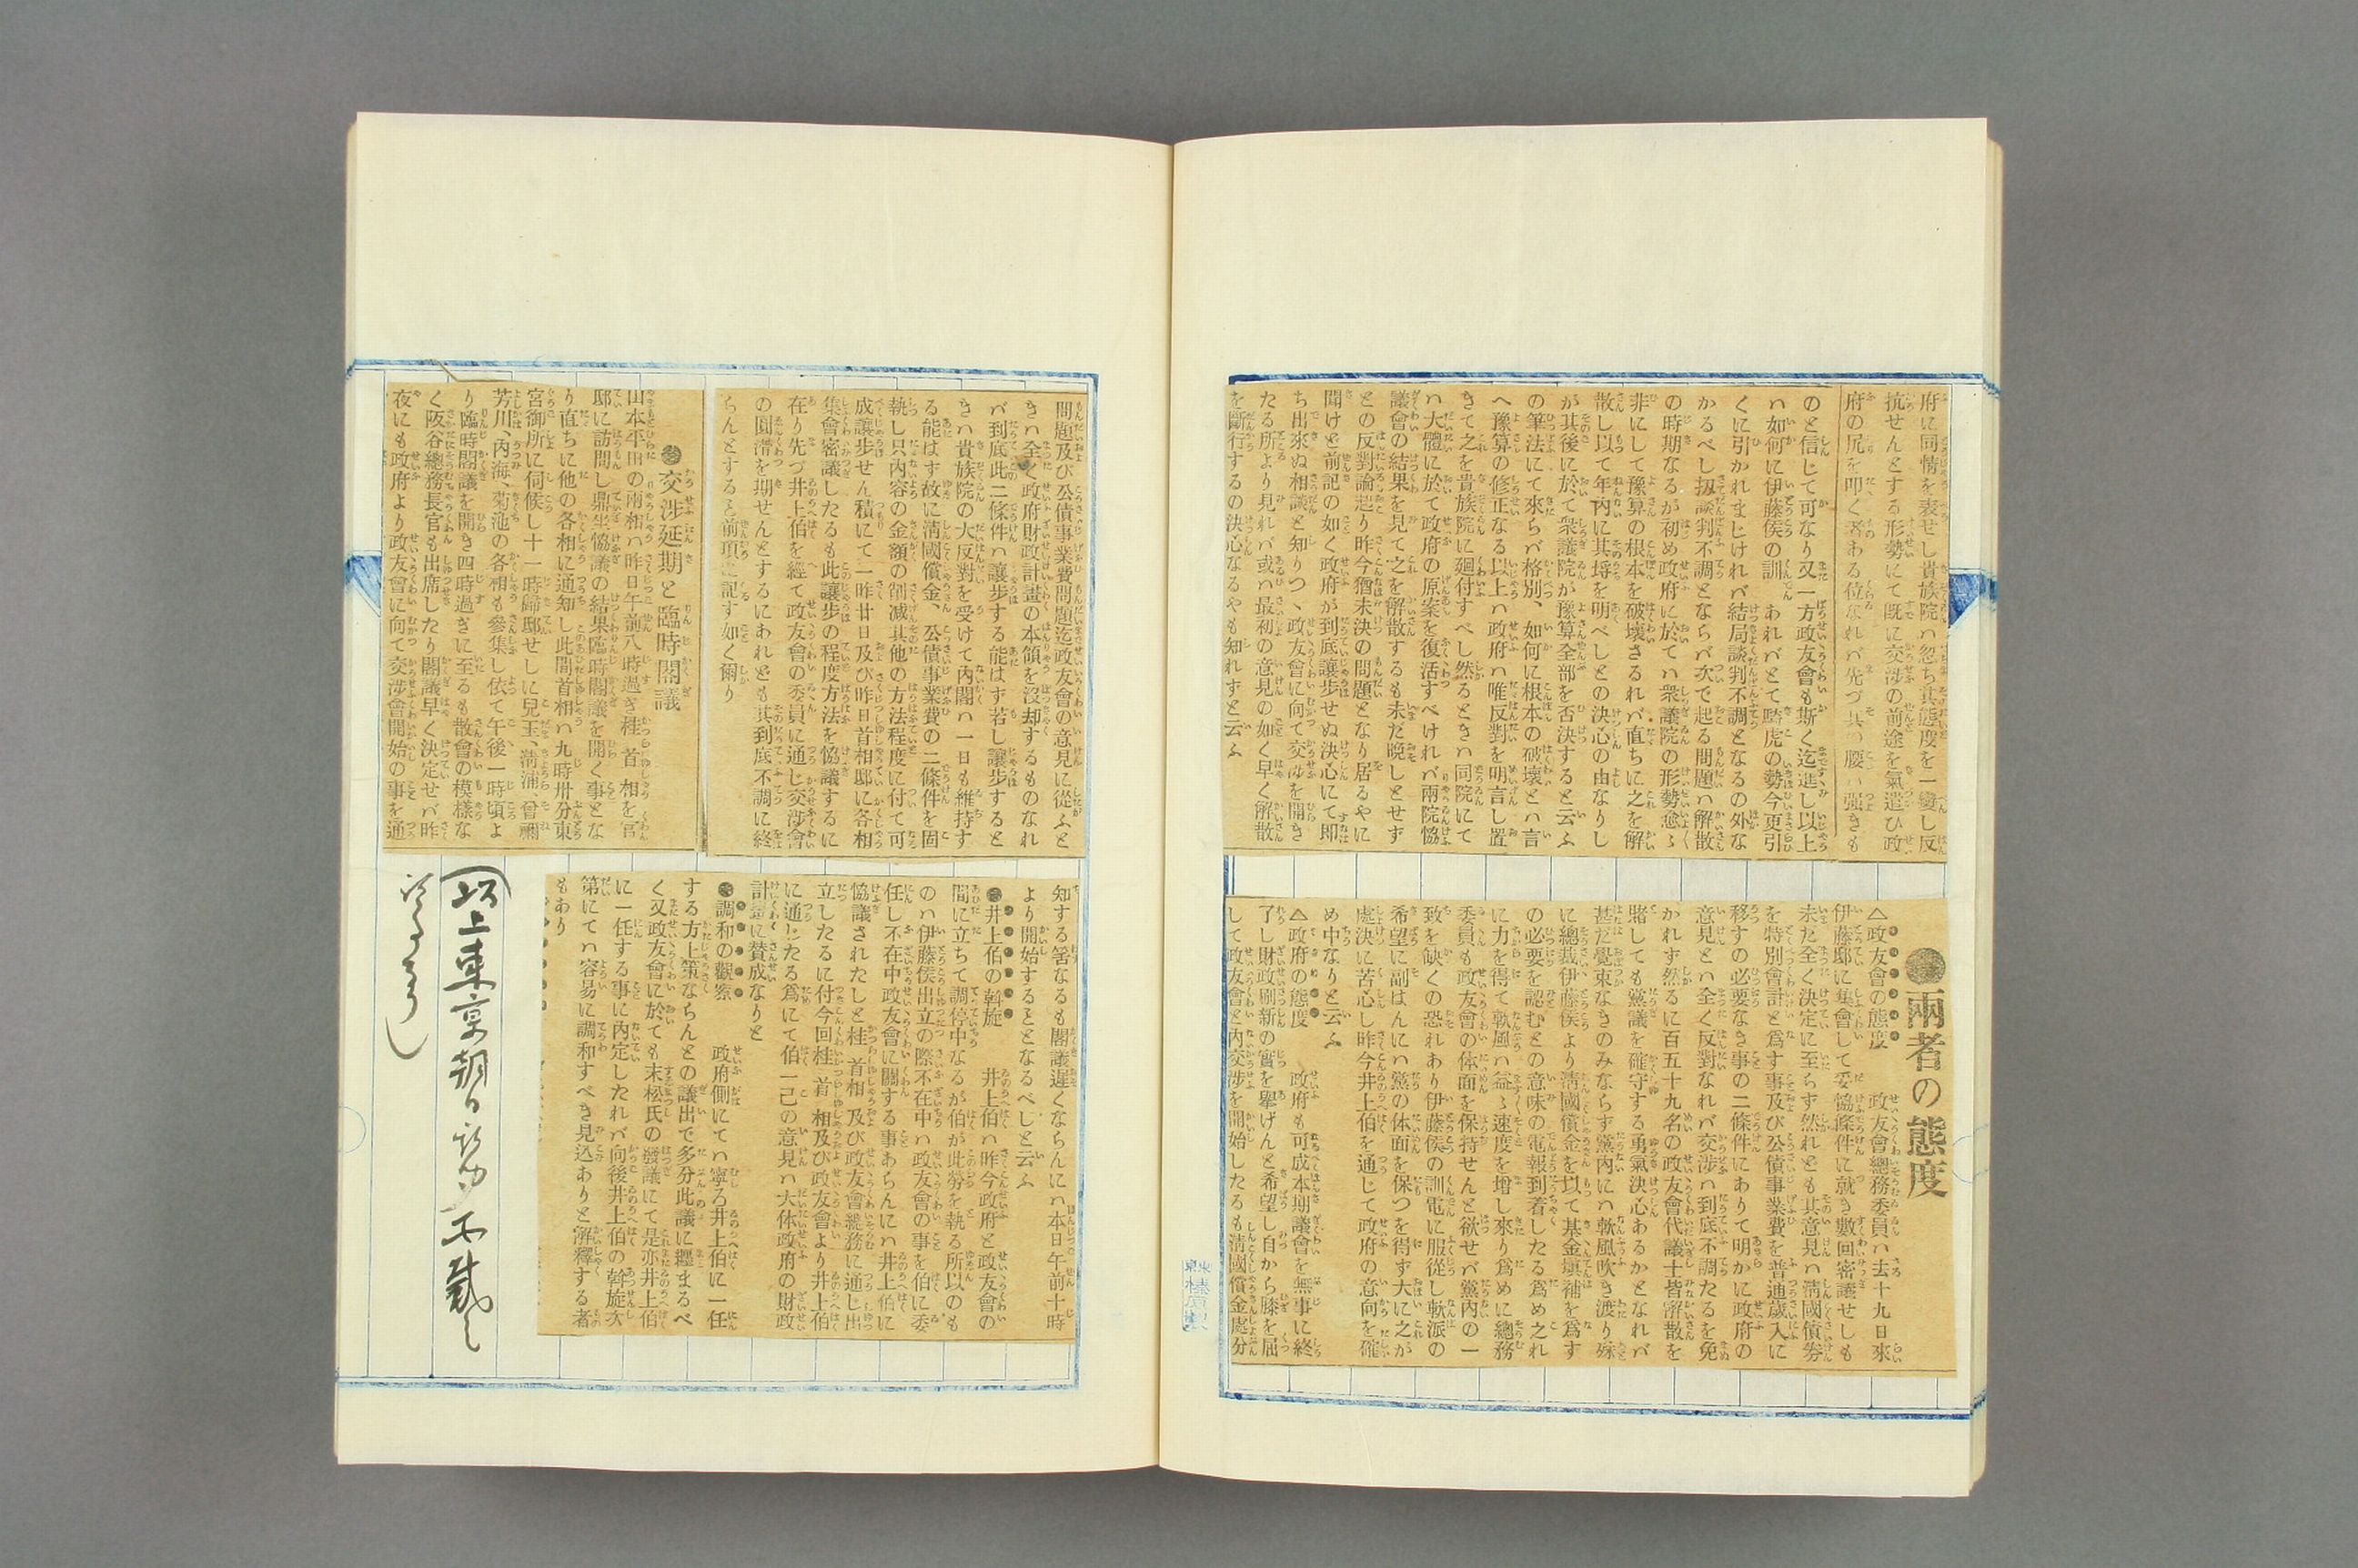 府に同情を表せし貴族院ハ忽ち其態度を一變し反
抗せんとする形勢にて既に交渉の前途を氣遣ひ政
府の尻を叩く者ある位なれバ先づ其の腰ハ强きも
のと信じて可なり又一方政友會も斯く迄進し以上
ハ如何に伊藤侯の訓 あれバとて騎虎の勢今更引
くに引かれまじけれバ結局談判不調となるの外な
かるべし扨談判不調とならバ次で起る問題ハ解散
の時期なるが初め政府に於てハ衆議院の形勢愈々
非にして豫算の根本を破壞さるれバ直ちに之を解
散し以て年內に其埓を明べしとの決心の由なりし
が其後に於て衆議院が豫算全部を否決すると云ふ
の筆法にて來らバ格別、如何に根本の破壞とハ言
へ豫算の修正なる以上ハ政府ハ唯反對を明言し置
きて之を貴族院に廻付すべし然るときハ同院にて
ハ大體に於て政府の原案を復活すべけれバ兩院協
議會の結果を見て之を解散するも未だ晩しとせず
との反對論起り昨今猶未決の問題となり居るやに
聞けど前記の如く政府が到底讓步せぬ決心にて即
ち出來ぬ相談と知りつゝ政友會に向て交渉を開き
たる所より見れバ或ハ最初の意見の如く早く解散
を斷行するの決心なるやも知れずと云ふ
●兩者の態度
△政友會の態度 政友會總務委員ハ去十九日來
伊藤邸に集會して妥協條件に就き數回密議せしも
未だ全く決定に至らず然れども其意見ハ淸國債券
を特別會計と爲す事及び公債事業費を普通歲入に
移すの必要なき事の二條件にありて明かに政府の
意見とハ全く反對なれバ交渉ハ到底不調たるを免
かれず然るに百五十九名の政友會代議士皆解散を
賭しても黨議を確守する勇氣決心あるかとなれバ
甚だ覺束なきのみならず黨內にハ軟風吹き渡り殊
に總裁伊藤侯より淸國償金を以て基金塡補を爲す
の必要を認むとの意味の電報到着したる爲め之れ
に力を得て軟風ハ益々速度を增し來り爲めに總務
委員も政友會の体面を保持せんと欲せバ黨內の一
致を缺くの恐れあり伊藤侯の訓電に服從し軟派の
希望に副はんにハ黨の体面を保つを得ず大に之が
處決に苦心し昨今井上伯を通じて政府の意向を確
め中なりと云ふ
△政府の態度 政府も可成本期議會を無事に終
了し財政刷新の實を擧げんと希望し自から膝を屈
して政友會と內交渉を開始したるも淸國償金處分
問題及び公債事業費問題迄政友會の意見に從ふと
きハ全く政府財政計畫の本領を沒却するものなれ
バ到底此二條件ハ讓步する能はず若し讓步すると
きハ貴族院の大反對を受けて內閣ハ一日も維持す
る能はず故に淸國償金、公債事業費の二條件を固
執し只內容の金額の削减其他の方法程度に付て可
成讓步せん積にて一昨廿日及び昨日首相邸に各相
集會密議したるも此讓步の程度方法を協議するに
在り先づ井上伯を經て政友會の委員に通じ交渉會
の圓滑を期せんとするにあれども其到底不調に終
らんとすると前項に記す如く爾り
●交渉延期と臨時閣議
山本平田の兩相ハ昨日午前八時過ぎ桂首相を官
邸に訪問し鼎坐協議の結果臨時閣議を開く事とな
り直ちに他の各相に通知し此間首相ハ九時卅分東
宮御所に伺候し十一時歸邸せしに兒玉、淸浦、曾禰
芳川、內海、菊池の各相も參集し依て午後一時頃よ
り臨時閣議を開き四時過ぎに至るも散會の模樣な
く阪谷總務長官も出席したり閣議早く決定せバ昨
夜にも政府より政友會に向て交渉會開始の事を通
知する筈なるも閣議遲くならんにハ本日午前十時
より開始することなるべしと云ふ
●井上伯の斡旋 井上伯ハ昨今政府と政友會の
間に立ちて調停中なるが伯が此勞を執る所以のも
のハ伊藤侯出立の際不在中ハ政友會の事を伯に委
任し不在中政友會に關する事あらんにハ井上伯に
協議されたしと桂首相及び政友會總務に通し出
立したるに付今回桂首相及び政友會より井上伯
に通じたる爲にて伯一己の意見ハ大体政府の財政
計畫に賛成なりと
●調和の觀察 政府側にてハ寧ろ井上伯に一任
する方上策ならんとの議出で多分此議に纒まるべ
く又政友會に於ても末松氏の發議にて是亦井上伯
に一任する事に內定したれバ向後井上伯の斡旋次
第にてハ容易に調和すべき見込ありと解釋する者
もあり
以上東京朝日新聞所載